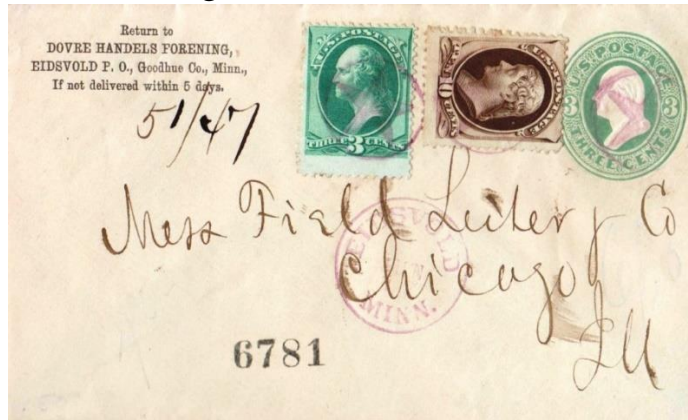 Return to
DOVRE HANDELS FORENING,
EIDSVOLD P. O., Goodhue Co., Minn.,
If not delivered within 5 days.
51/47
U.S. POSTAGE
THREE 3 CENTS
U.S. POSTAGE
10
U.S. POSTAGE
3 3
THREE CENTS
Mess Field Leiter & Co
Chicago
Ill
EIDSVOLD
MINN.
6781